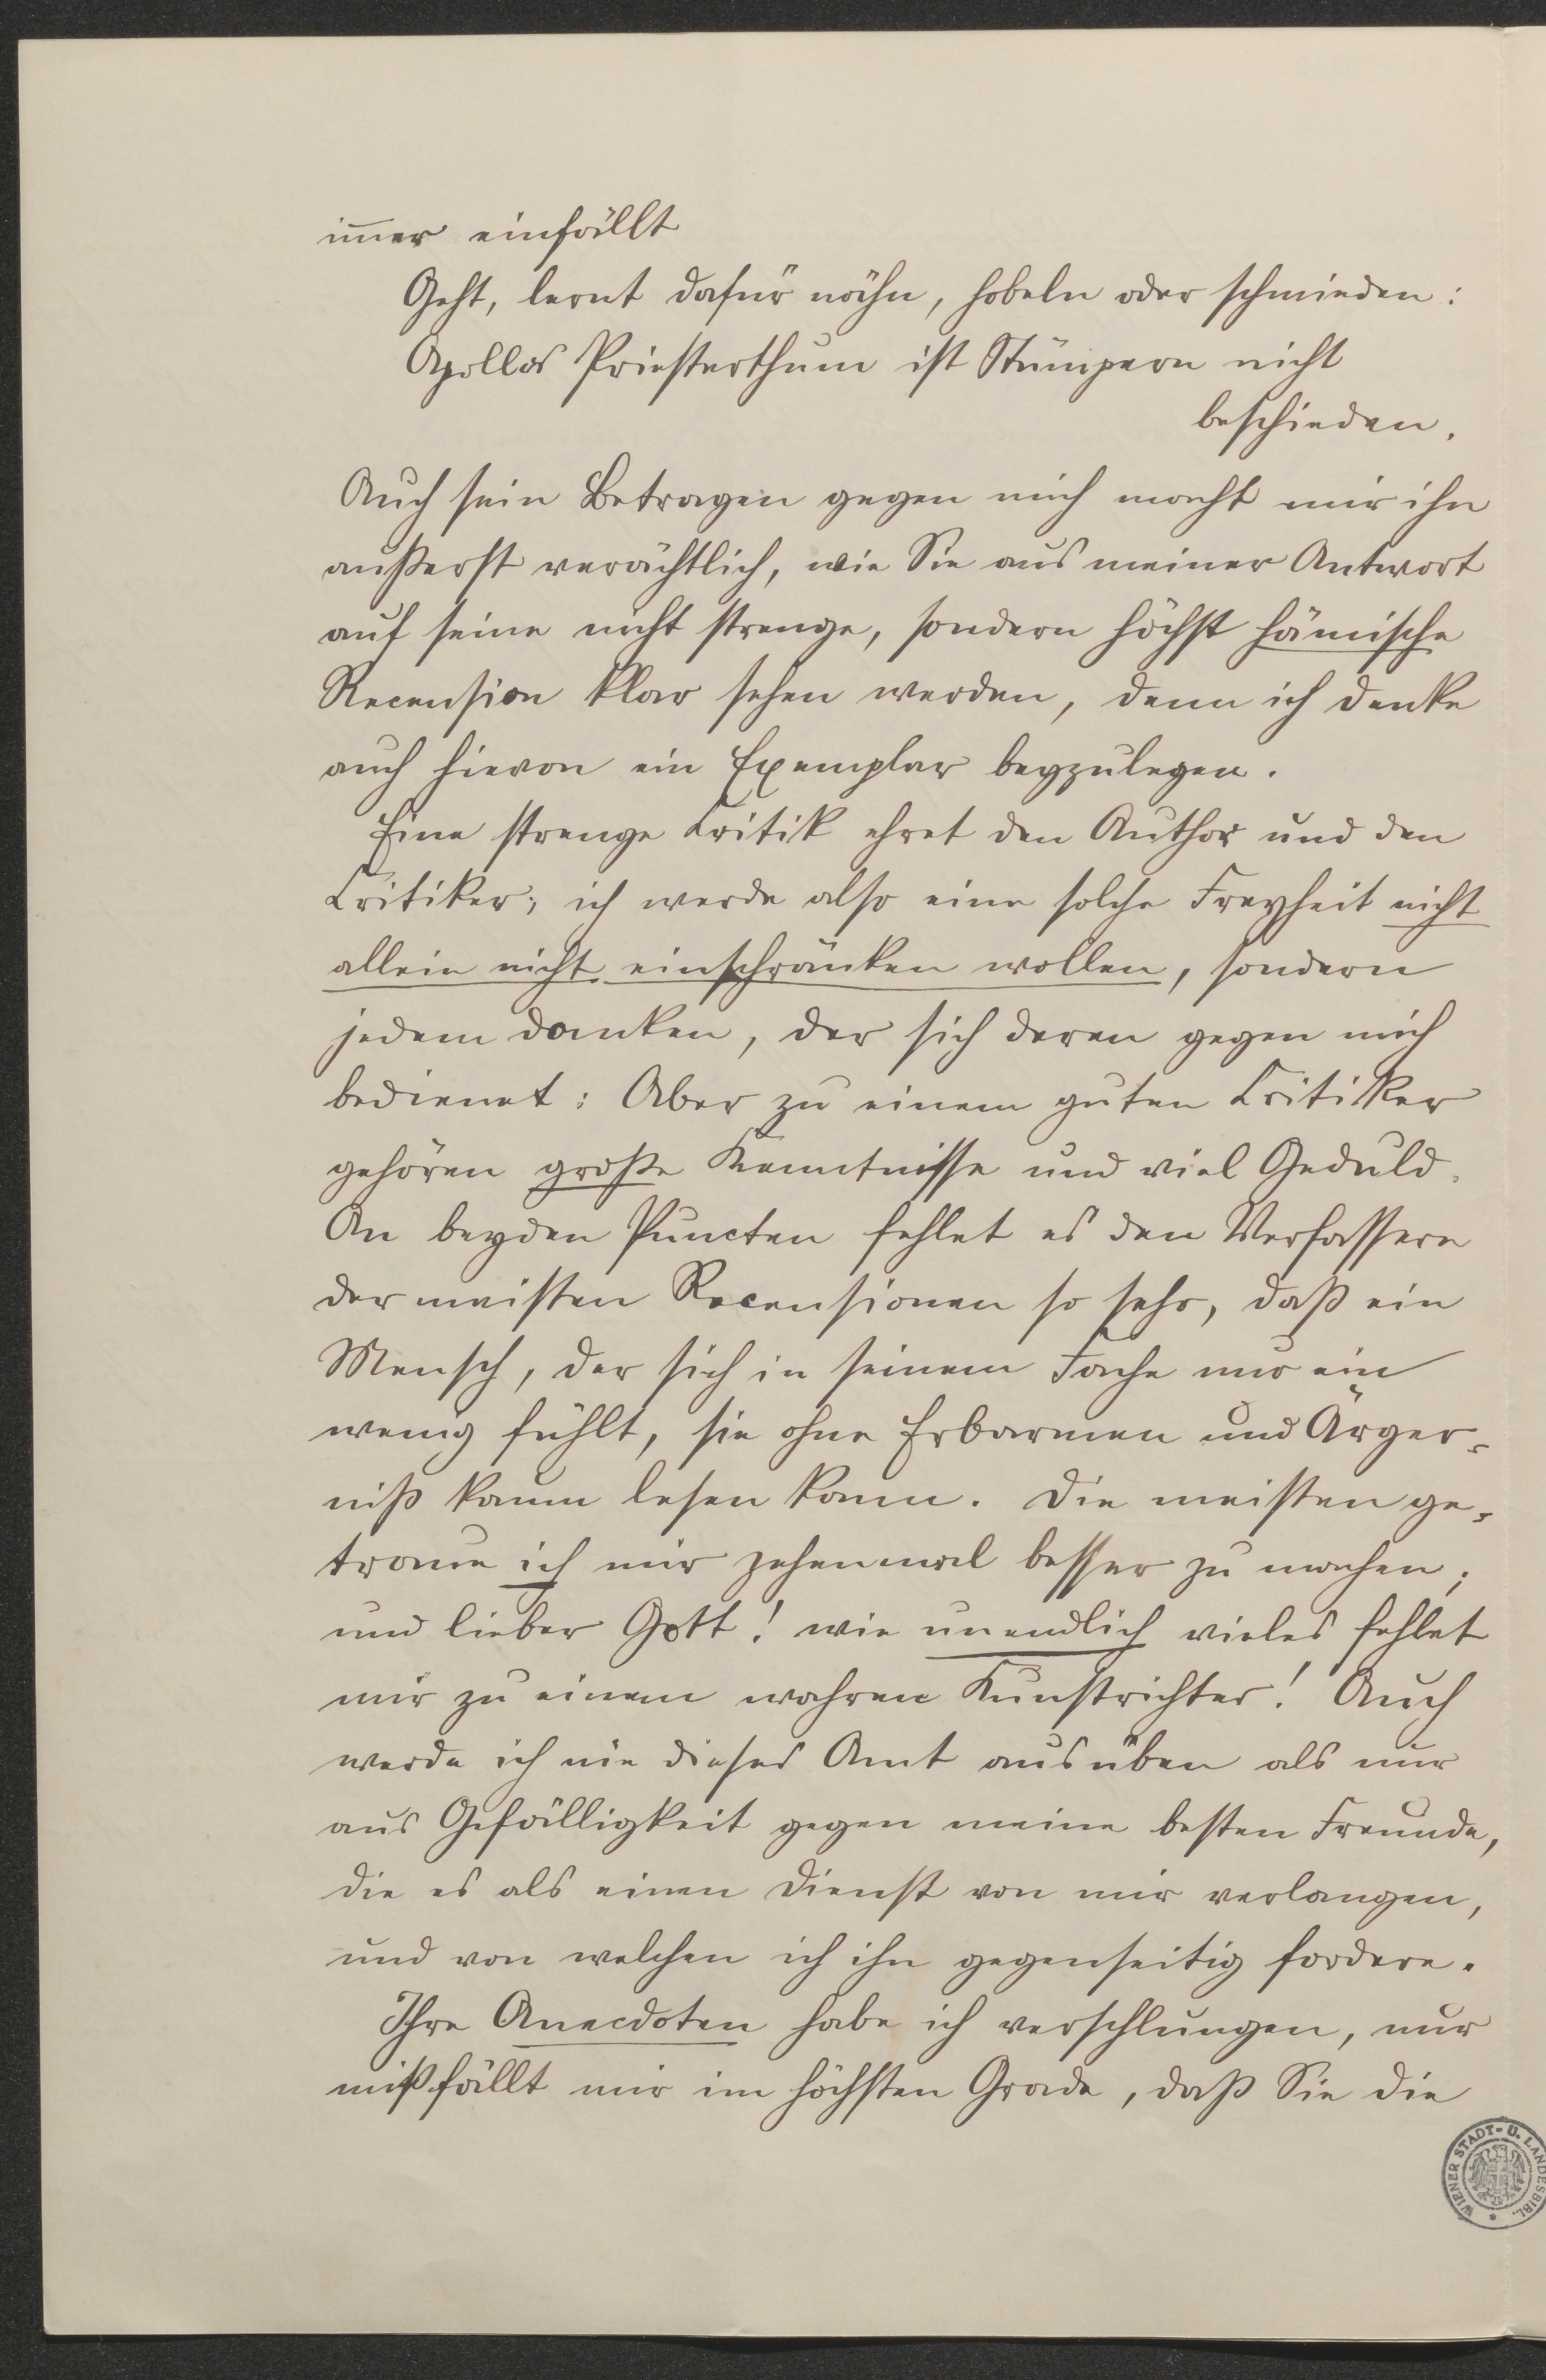 im̄er einfällt
Geht, lernt dafür nähn, hobeln oder schmieden:
Apollos Priesterthum ist Stümpern nicht
beschieden.
Auch sein Betragen gegen mich macht mir ihn
außerst verächtlich, wie Sie aus meiner Antwort
auf seine nicht strenge, sondern höchst hämische
Recension klar sehen werden, denn ich denke
auch hievon ein Exemplar beyzulegen.
Eine strenge Critik ehret den Author und den
Critiker; ich werde also eine solche Freyheit nicht
allein nicht einschränken wollen, sondern
jedem danken, der sich deren gegen mich
bedienet: Aber zu einem guten Critiker
gehören große Kenntnisse und viel Geduld.
An beyden Puncten fehlet es den Verfassern
der meisten Recensionen so sehr, daß ein
Mensch, der sich in seinem Fache nur ein
wenig fühlt, sie ohne Erbarmen und Ärger-
niß kaum lesen kann. Die meisten ge-
traue ich mir zehenmal besser zu machen;
und lieber Gott! wie unendlich vieles fehlet
mir zu einem wahren Kunstrichter! Auch
werde ich nie dieses Amt ausüben als nur
aus Gefälligkeit gegen meine besten Freunde,
die es als einen Dienst von mir verlangen,
und von welchen ich ihn gegenseitig fordere.
Ihre Anecdoten habe ich verschlungen, nur
mißfällt mir im höchsten Grade, daß Sie die
WIENER STADT- U. LANDESBIBL.